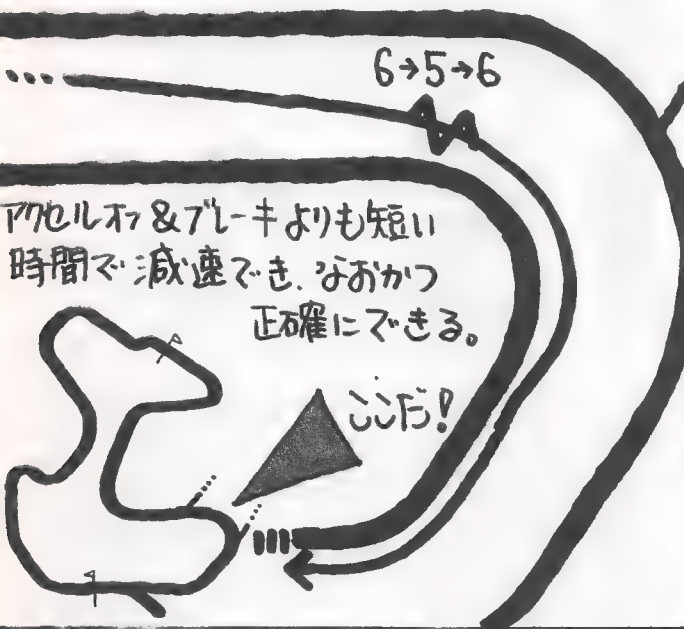 6→5→6
アクセルオフ&ブレーキよりも短い
時間で減速でき、なおかつ
正確にできる。
ここだ!